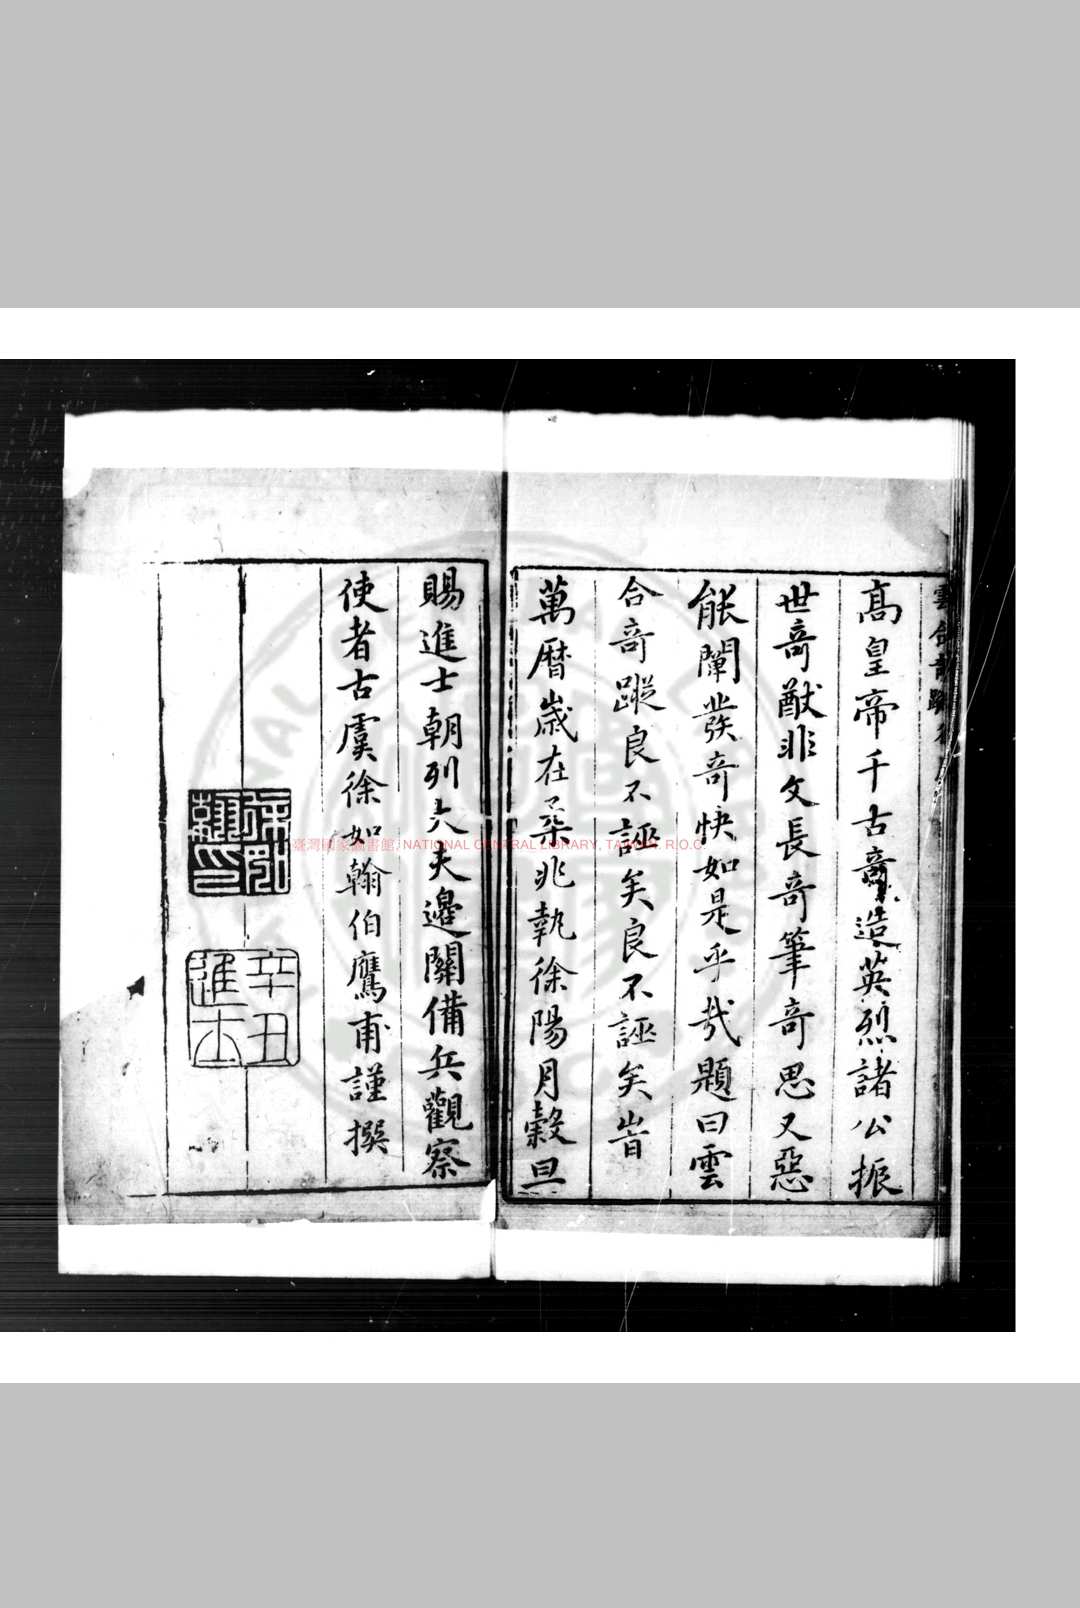 高皇帝千古奇造英烈諸公振
世奇猷非文長奇筆奇思又惡
能闡發奇快如是乎哉題曰雲
合奇蹤良不誣矣良不誣矣旹
萬曆歲在柔兆執徐陽月穀旦
賜進士朝列大夫邊關備兵觀察
使者古虞徐如翰伯鷹甫謹撰
徐如
翰印
辛丑
進士
臺灣國家圖書館, NATIONAL CENTRAL LIBRARY, TAIWAN, R.O.C.